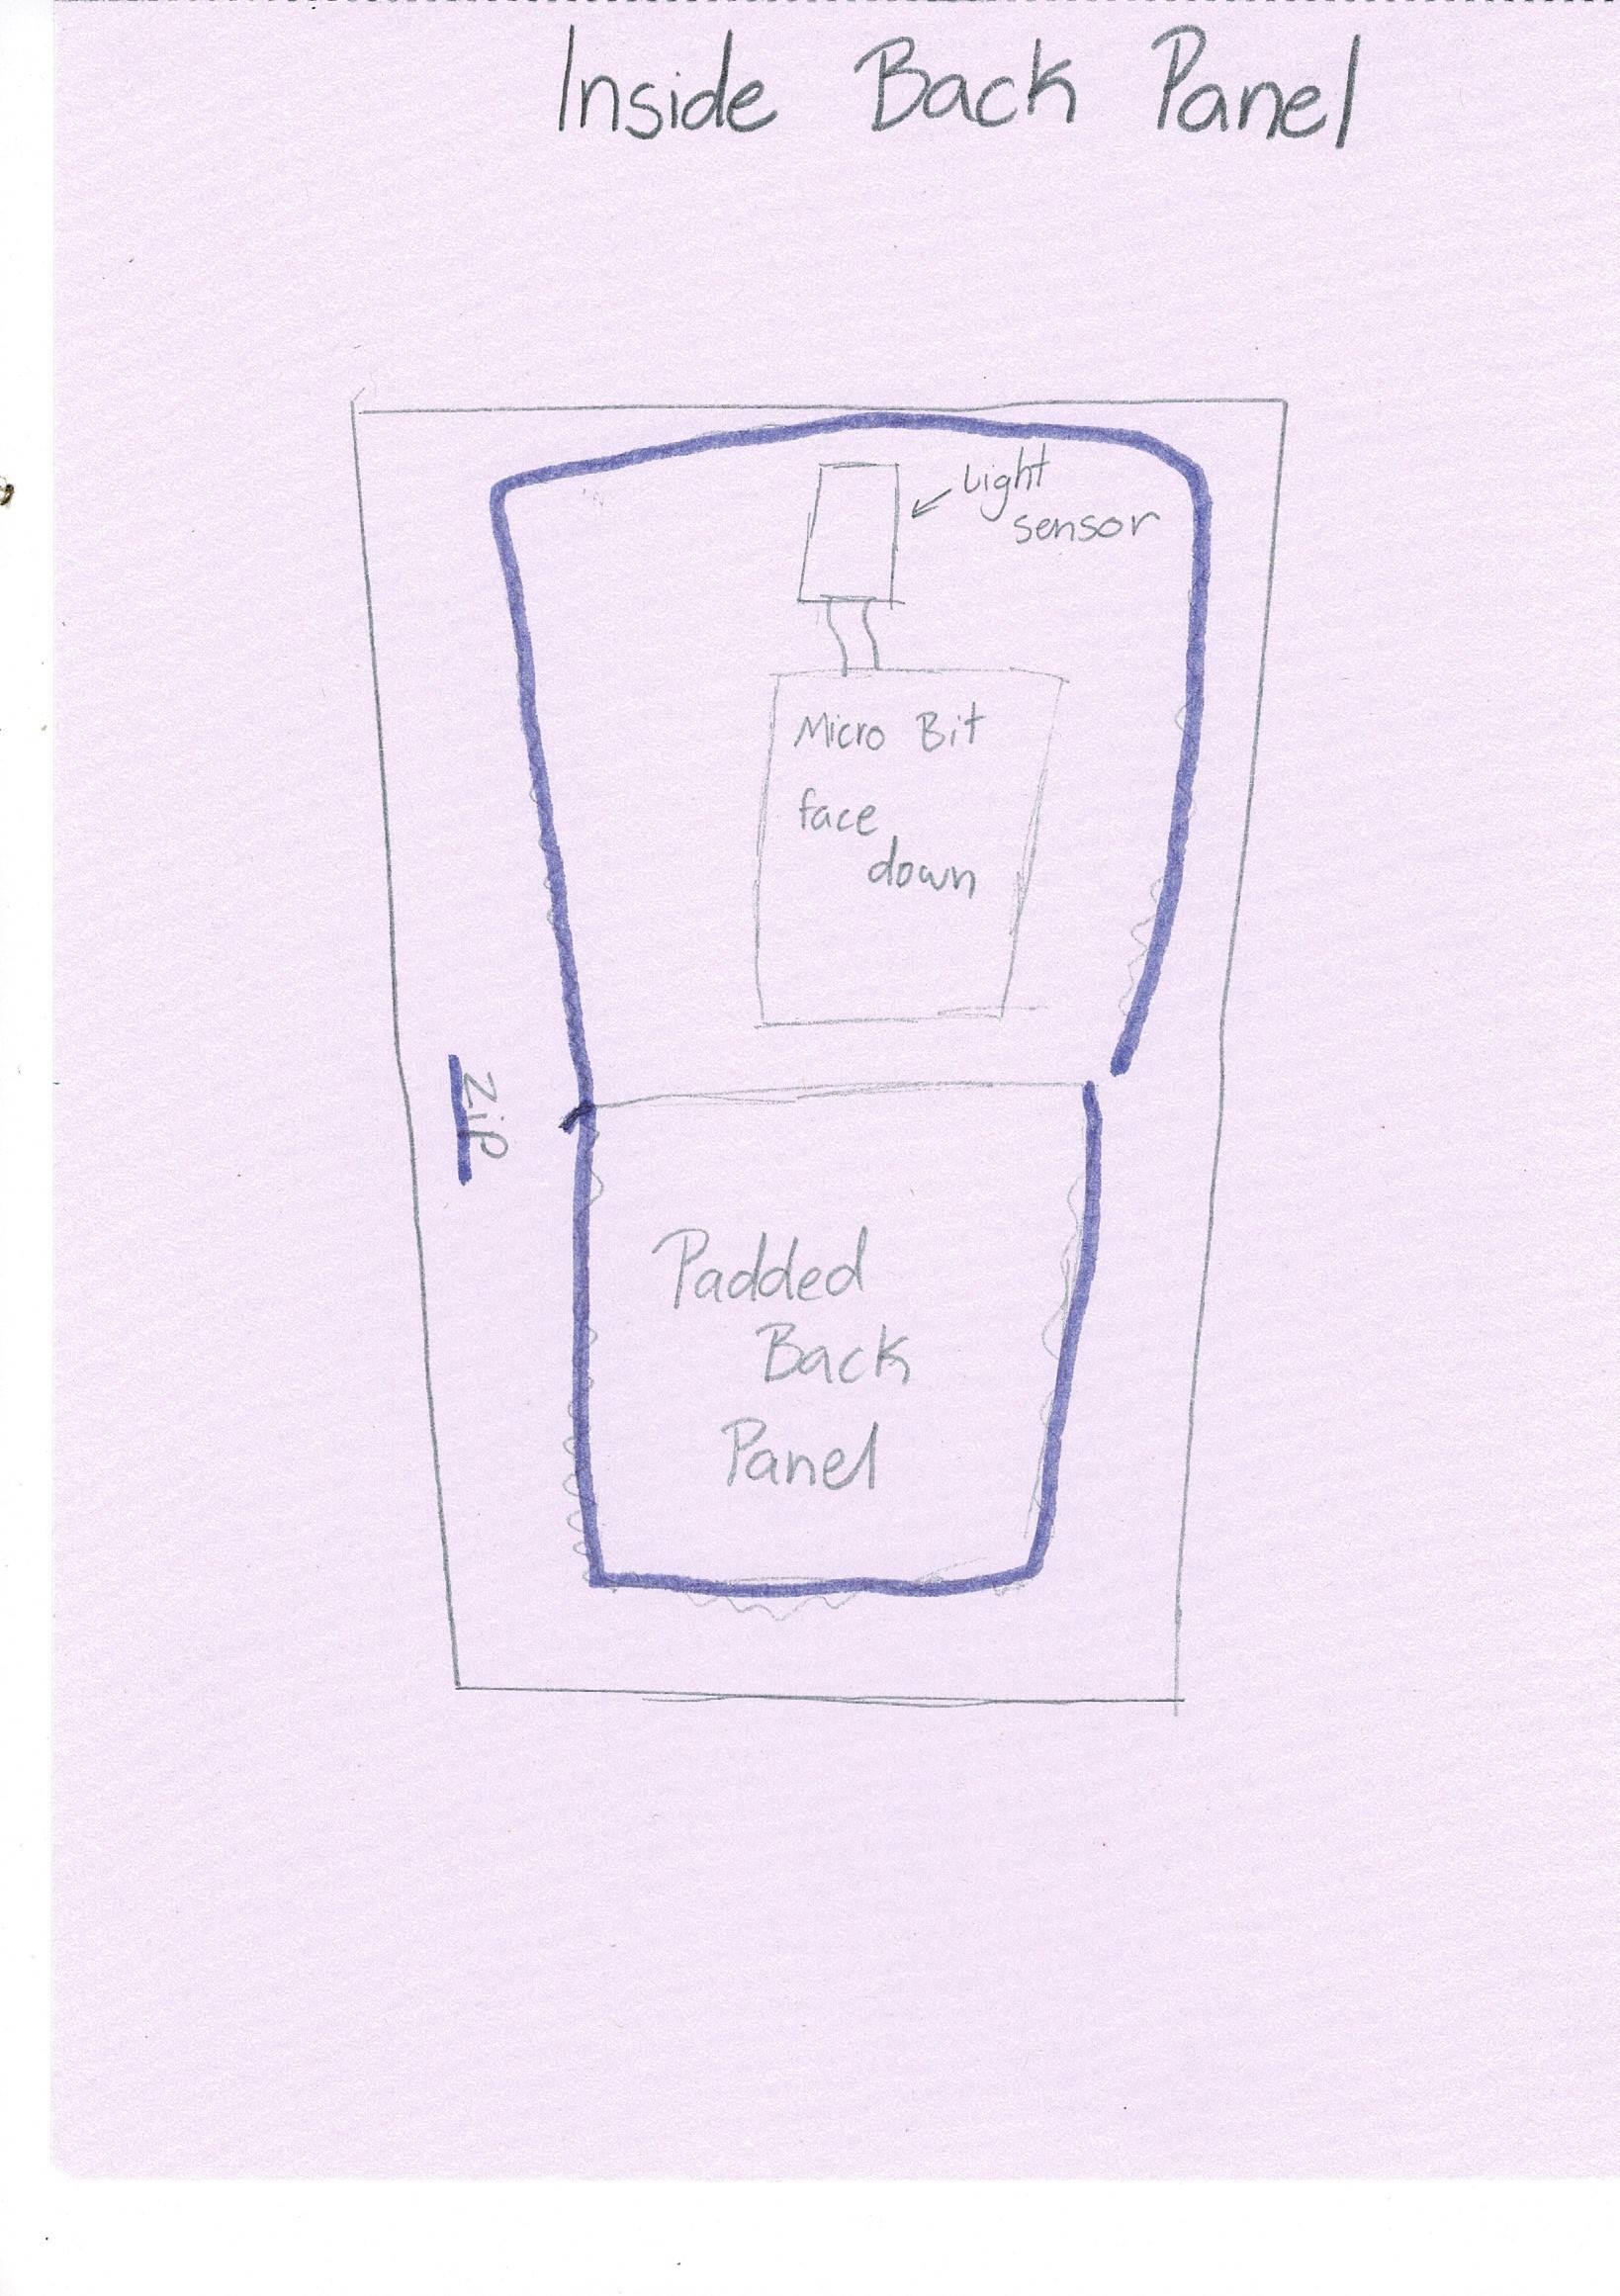 Inside Back Panel
Light
sensor
Micro Bit
face
down
Zip
Padded
Back
Panel